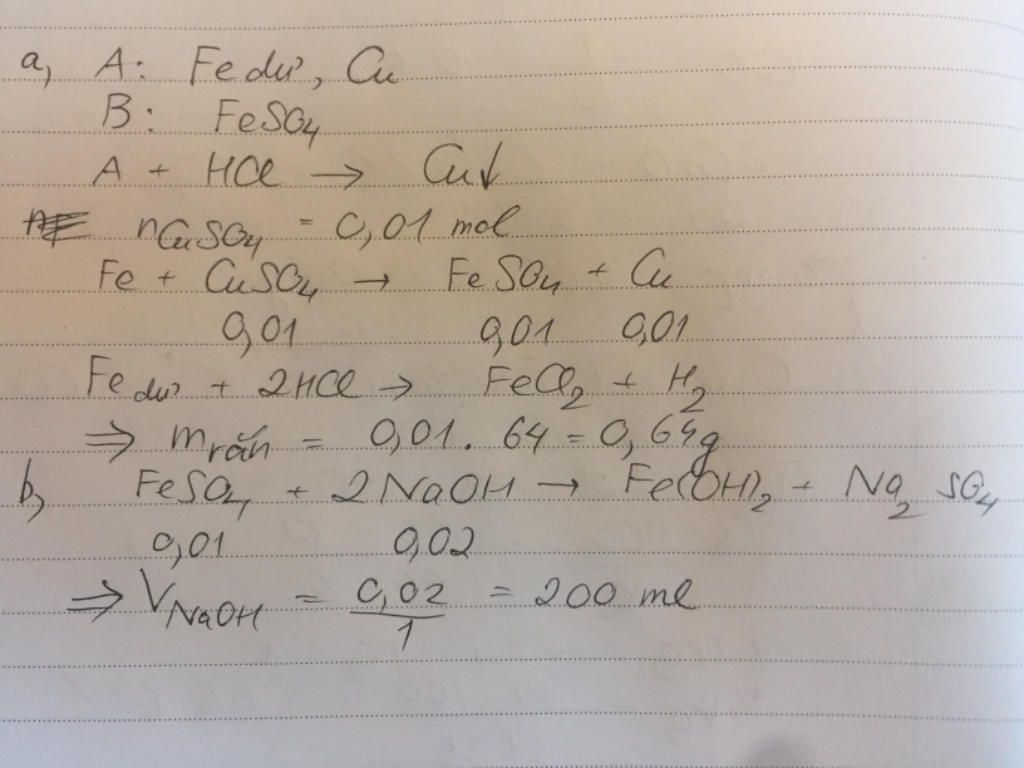 a, A: Fe dư, Cu
B: FeSO4
A + HCl → Cu↓
nCuSO4 = 0,01 mol
Fe + CuSO4 → FeSO4 + Cu
0,01 0,01 0,01
Fe dư + 2HCl → FeCl2 + H2
⇒ m rắn = 0,01. 64 = 0,64g
b, FeSO4 + 2NaOH → Fe(OH)2 + Na2SO4
0,01 0,02
⇒ VNaOH = 0,02/1 = 200 ml